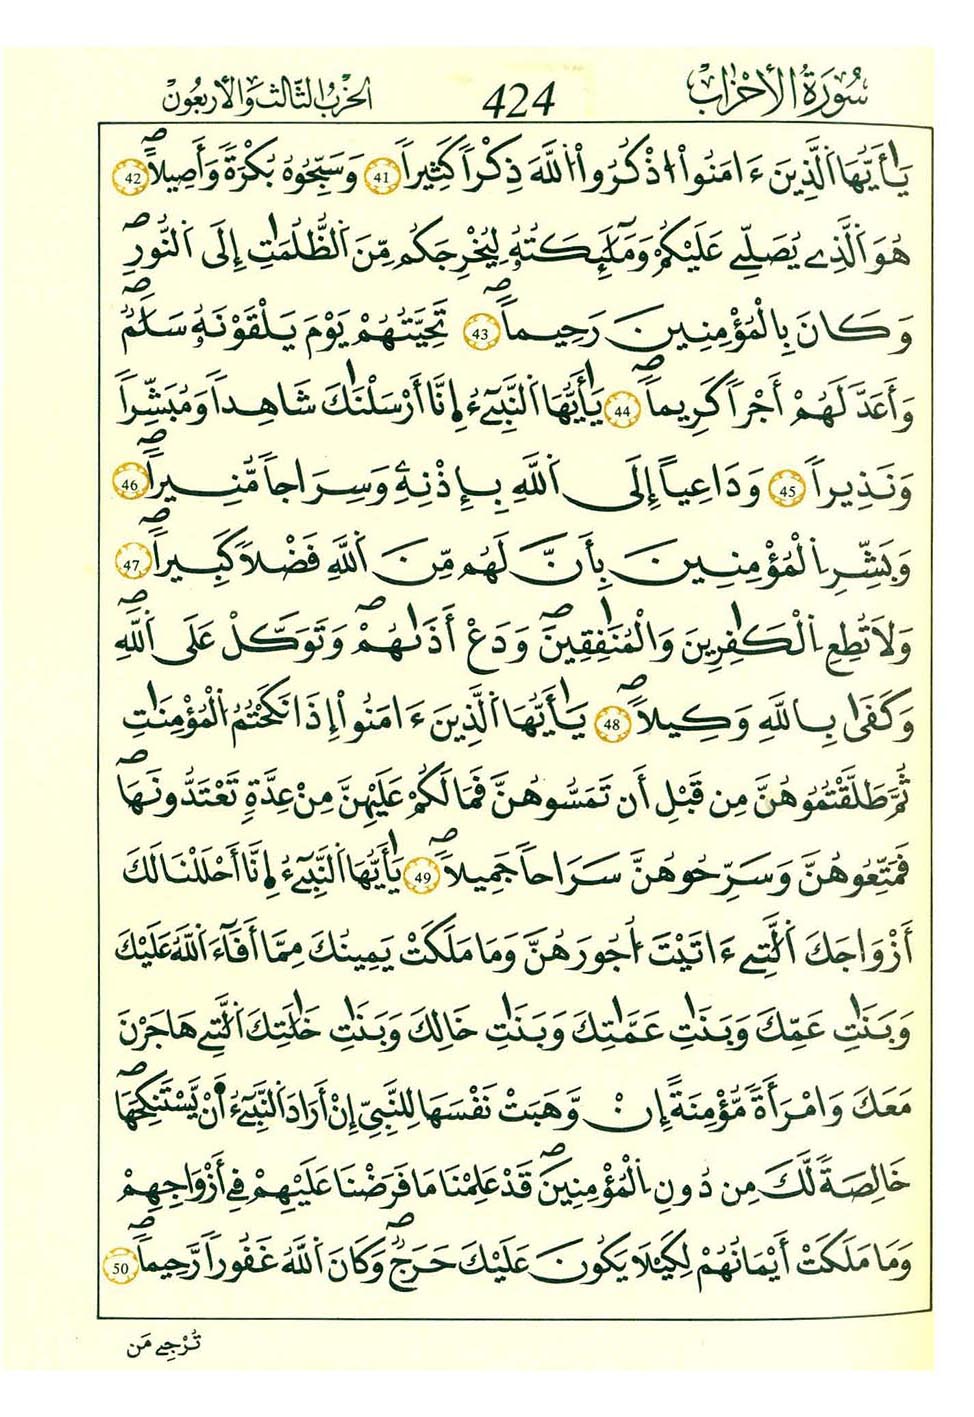 سُورَةُ الأَحْزَابِ 424 الحِزْبُ الثَّالِثُ وَالأَرْبَعُونْ
يَٰأَيُّهَا اَ۬لذِينَ ءَامَنُواْ اُ۟ذْكُرُواْ اُ۬للَّهَ ذِكْراٗ كَثِيراٗ 41 وَسَبِّحُوهُ بُكْرَةٗ وَأَصِيلاًۖ 42
هُوَ اَ۬لذِے يُصَلِّے عَلَيْكُمْ وَمَلَٰٓئِكَتُهُۥ لِيُخْرِجَكُم مِّنَ اَ۬لظُّلُمَٰتِ إِلَى اَ۬لنُّورِۖ
وَكَانَ بِالْمُؤْمِنِينَ رَحِيماٗۖ 43 تَحِيَّتُهُمْ يَوْمَ يَلْقَوْنَهُۥ سَلَٰمٞۖ
وَأَعَدَّ لَهُمْ أَجْراٗ كَرِيماٗۖ 44 يَٰأَيُّهَا اَ۬لنَّبِيٓءُ اِ۪نَّا أَرْسَلْنَٰكَ شَاهِداٗ وَمُبَشِّراٗ
وَنَذِيراٗ 45 وَدَاعِياً إِلَى اَ۬للَّهِ بِإِذْنِهِۦ وَسِرَاجاٗ مُّنِيراٗۖ 46
وَبَشِّرِ اِ۬لْمُؤْمِنِينَ بِأَنَّ لَهُم مِّنَ اَ۬للَّهِ فَضْلاٗ كَبِيراٗۖ 47
وَلَا تُطِعِ اِ۬لْكَٰفِرِينَ وَالْمُنَٰفِقِينَۖ وَدَعْ أَذَىٰهُمْۖ وَتَوَكَّلْ عَلَى اَ۬للَّهِۖ
وَكَفَىٰ بِاللَّهِ وَكِيلاٗۖ 48 يَٰأَيُّهَا اَ۬لذِينَ ءَامَنُواْ إِذَا نَكَحْتُمُ اُ۬لْمُؤْمِنَٰتِ
ثُمَّ طَلَّقْتُمُوهُنَّ مِن قَبْلِ أَن تَمَسُّوهُنَّ فَمَا لَكُمْ عَلَيْهِنَّ مِنْ عِدَّةٖ تَعْتَدُّونَهَاۖ
فَمَتِّعُوهُنَّ وَسَرِّحُوهُنَّ سَرَاحاٗ جَمِيلاٗۖ 49 يَٰأَيُّهَا اَ۬لنَّبِيٓءُ اِ۪نَّا أَحْلَلْنَا لَكَ
أَزْوَٰجَكَ اَ۬لَّٰتِے ءَاتَيْتَ أُجُورَهُنَّ وَمَا مَلَكَتْ يَمِينُكَ مِمَّا أَفَآءَ اَ۬للَّهُ عَلَيْكَ
وَبَنَٰتِ عَمِّكَ وَبَنَٰتِ عَمَّٰتِكَ وَبَنَٰتِ خَالِكَ وَبَنَٰتِ خَٰلَٰتِكَ اَ۬لَّٰتِے هَاجَرْنَ
مَعَكَ وَامْرَأَةٗ مُّؤْمِنَةً إِنْ وَّهَبَتْ نَفْسَهَا لِلنَّبِيِّ إِنْ أَرَادَ اَ۬لنَّبِيٓءُ اَ۟نْ يَّسْتَنكِحَهَاۖ
خَالِصَةٗ لَّكَ مِن دُونِ اِ۬لْمُؤْمِنِينَۖ قَدْ عَلِمْنَا مَا فَرَضْنَا عَلَيْهِمْ فِے أَزْوَٰجِهِمْ
وَمَا مَلَكَتْ أَيْمَٰنُهُمْ لِكَيْلَا يَكُونَ عَلَيْكَ حَرَجٞۖ وَكَانَ اَ۬للَّهُ غَفُوراٗ رَّحِيماٗۖ 50
تُرْجِے مَن